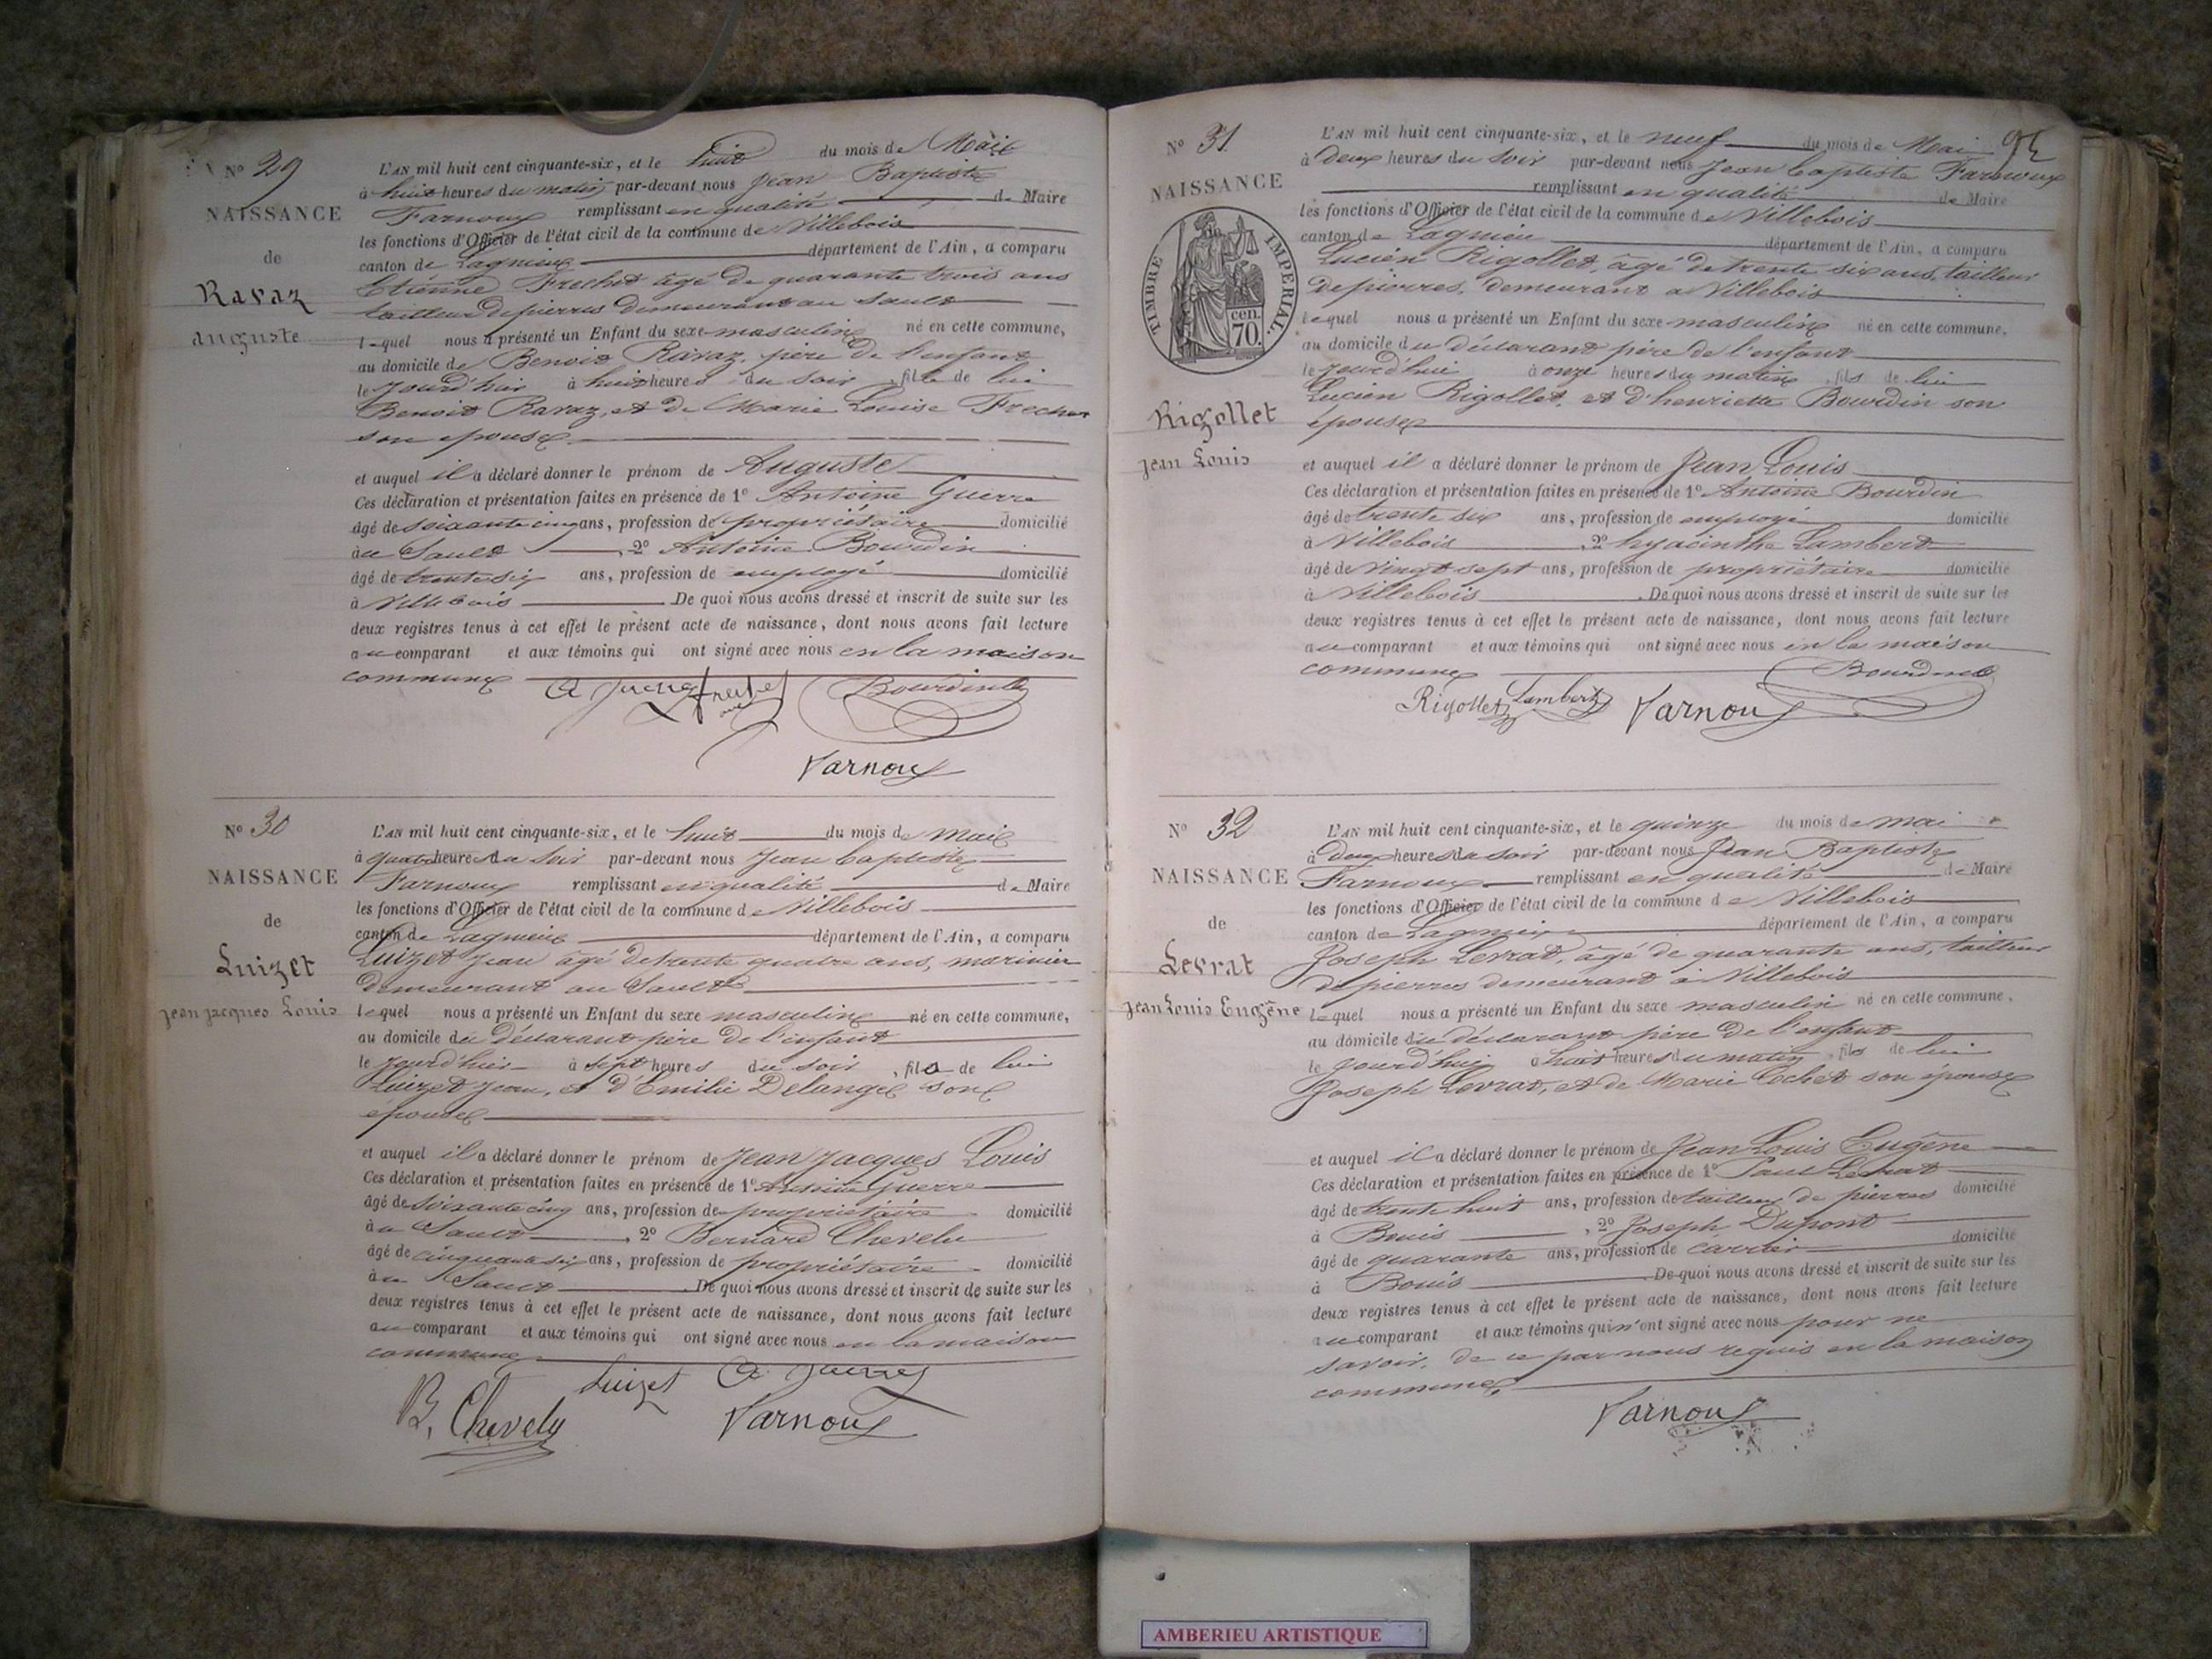 N° 29
NAISSANCE
de
Ravaz
auguste
L'AN mil huit cent cinquante-six, et le huit du mois de Mai
à huit heures du matin par-devant nous Jean Baptiste
Farnoux remplissant en qualité de Maire
les fonctions d'Officier de l'état civil de la commune de Villebois
canton de Lagnieu département de l'Ain, a comparu
Etienne Frechet âgé de quarante trois ans
tailleur de pierres demeurant au Sault
lequel nous a présenté un Enfant du sexe masculin né en cette commune,
au domicile de Benoit Ravaz, père de l'enfant
le jourd'hier à huit heures du soir, fils de lui
Benoit Ravaz, et de Marie Louise Frechet
son epouse
et auquel il a déclaré donner le prénom de Auguste
Ces déclaration et présentation faites en présence de 1° Antoine Guerre
âgé de soixante cinq ans, profession de propriétaire domicilié
au Sault, 2° Antoine Bourdin
âgé de trente six ans, profession de employé domicilié
à Villebois. De quoi nous avons dressé et inscrit de suite sur les
deux registres tenus à cet effet le présent acte de naissance, dont nous avons fait lecture
au comparant et aux témoins qui ont signé avec nous en la maison
commune
A Guerre Frechet Bourdin
Farnoux
N° 30
NAISSANCE
de
Luizet
jean jacques Louis
L'AN mil huit cent cinquante-six, et le huit du mois de mai
à quatre heures du soir par-devant nous Jean baptiste
Farnoux remplissant en qualité de Maire
les fonctions d'Officier de l'état civil de la commune de Villebois
canton de Lagnieu département de l'Ain, a comparu
Luizet Jean âgé de trente quatre ans, marinier
demeurant au Sault
lequel nous a présenté un Enfant du sexe masculin né en cette commune,
au domicile du déclarant père de l'enfant
le jourd'hier à sept heures du soir, fils de lui
Luizet Jean, et d'Emilie Delange son
epouse
et auquel il a déclaré donner le prénom de Jean Jacques Louis
Ces déclaration et présentation faites en présence de 1° Antoine Guerre
âgé de soixante cinq ans, profession de propriétaire domicilié
au Sault, 2° Bernard Chevelu
âgé de cinquante six ans, profession de propriétaire domicilié
au Sault. De quoi nous avons dressé et inscrit de suite sur les
deux registres tenus à cet effet le présent acte de naissance, dont nous avons fait lecture
au comparant et aux témoins qui ont signé avec nous en la maison
commune
Luizet A Guerre
B. Chevelu Farnoux
95
N° 31
NAISSANCE
TIMBRE IMPERIAL.
70 cen.
Rigollet
jean Louis
L'AN mil huit cent cinquante-six, et le neuf du mois de Mai
à deux heures du soir par-devant nous Jean baptiste Farnoux
remplissant en qualité de Maire
les fonctions d'Officier de l'état civil de la commune de Villebois
canton de Lagnieu département de l'Ain, a comparu
Lucien Rigollet, âgé de trente six ans, tailleur
de pierres, demeurant a Villebois
lequel nous a présenté un Enfant du sexe masculin né en cette commune,
au domicile du déclarant père de l'enfant
le jourd'hui à onze heures du matin, fils de lui
Lucien Rigollet, et d'henriette Bourdin son
épouse
et auquel il a déclaré donner le prénom de Jean Louis
Ces déclaration et présentation faites en présence de 1° Antoine Bourdin
âgé de trente six ans, profession de employé domicilié
à Villebois, 2° hyacinthe Lambert
âgé de vingt sept ans, profession de propriétaire domicilié
à Villebois. De quoi nous avons dressé et inscrit de suite sur les
deux registres tenus à cet effet le présent acte de naissance, dont nous avons fait lecture
au comparant et aux témoins qui ont signé avec nous en la maison
commune Bourdin
Rigollet Lambert Farnoux
N° 32
NAISSANCE
de
Levrat
Jean Louis Eugène
L'AN mil huit cent cinquante-six, et le quinze du mois de mai
à deux heures du soir par-devant nous Jean Baptiste
Farnoux remplissant en qualité de Maire
les fonctions d'Officier de l'état civil de la commune de Villebois
canton de Lagnieu département de l'Ain, a comparu
Joseph Levrat, âgé de quarante ans, tailleur
de pierres demeurant à Villebois
lequel nous a présenté un Enfant du sexe masculin né en cette commune,
au domicile du déclarant père de l'enfant
le jourd'hui à huit heures du matin, fils de lui
Joseph Levrat, et de Marie Cochet son épouse
et auquel il a déclaré donner le prénom de Jean Louis Eugène
Ces déclaration et présentation faites en présence de 1° Paul Levrat
âgé de trente huit ans, profession de tailleur de pierres domicilié
à Bouis, 2° Joseph Dupont
âgé de quarante ans, profession de carrier domicilié
à Bouis. De quoi nous avons dressé et inscrit de suite sur les
deux registres tenus à cet effet le présent acte de naissance, dont nous avons fait lecture
au comparant et aux témoins qui n'ont signé avec nous pour ne
savoir, de ce par nous requis en la maison
commune,
Farnoux
AMBERIEU ARTISTIQUE